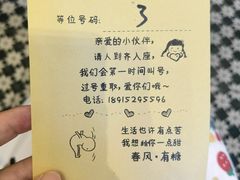 等位号码: 3
亲爱的小伙伴,
请人到齐入座,
我们会第一时间叫号,
过号重取,爱你们哦~
电话: 18915295596
生活也许有点苦
我想给你一点甜
春风·有糖